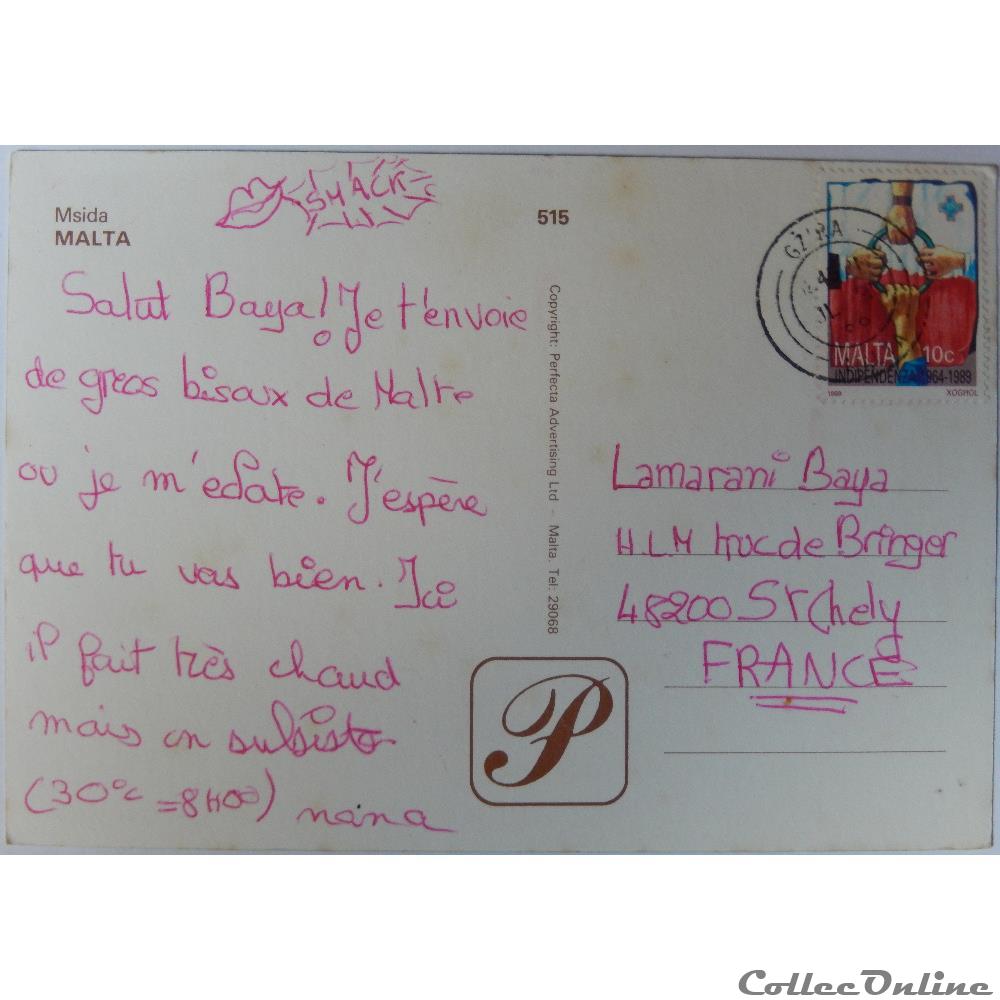 Msida
MALTA
SMACK
515
Salut Baya! Je t'envoie
de gros bisoux de Malte
ou je m'eclate. J'espère
que tu vas bien. Ici
il fait très chaud
mais on subsiste
(30°c =8H00) nana
Copyright: Perfecta Advertising Ltd - Malta. Tel: 29068
P
GZ'RA
JL
MALTA 10c
INDIPENDENZA 1964-1989
1989 XOGHOL
Lamarani Baya
H.L.M truc de Bringer
48200 St Chely
FRANCE
CollecOnline